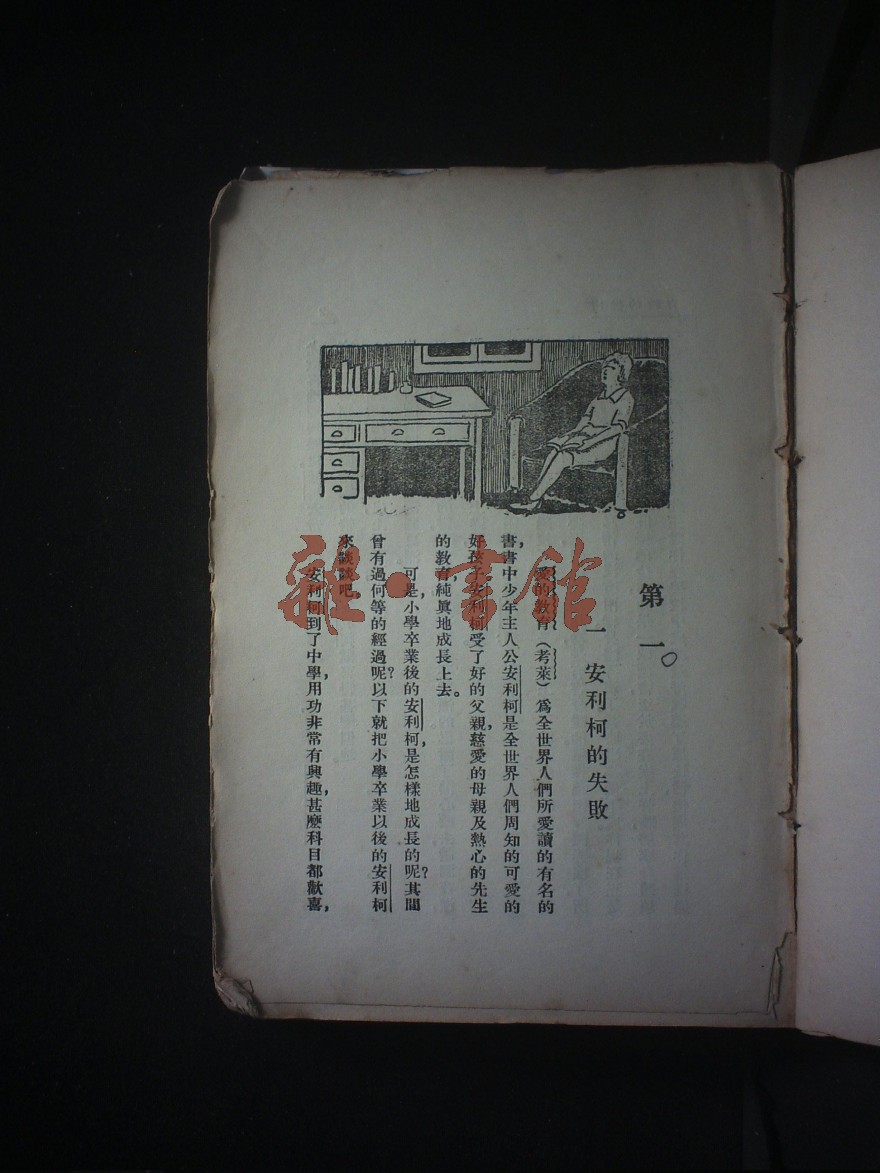 第一
一 安利柯的失敗
愛的教育(考萊)爲全世界人們所愛讀的有名的
書,書中少年主人公安利柯是全世界人們周知的可愛的
好孩子。安利柯受了好的父親,慈愛的母親及熱心的先生
的教育,純眞地成長上去。
可是,小學卒業後的安利柯,是怎樣地成長的呢?其間
曾有過何等的經過呢?以下就把小學卒業以後的安利柯
來談談吧。
安利柯到了中學,用功非常有興趣,甚麽科目都歡喜,
雜·書館